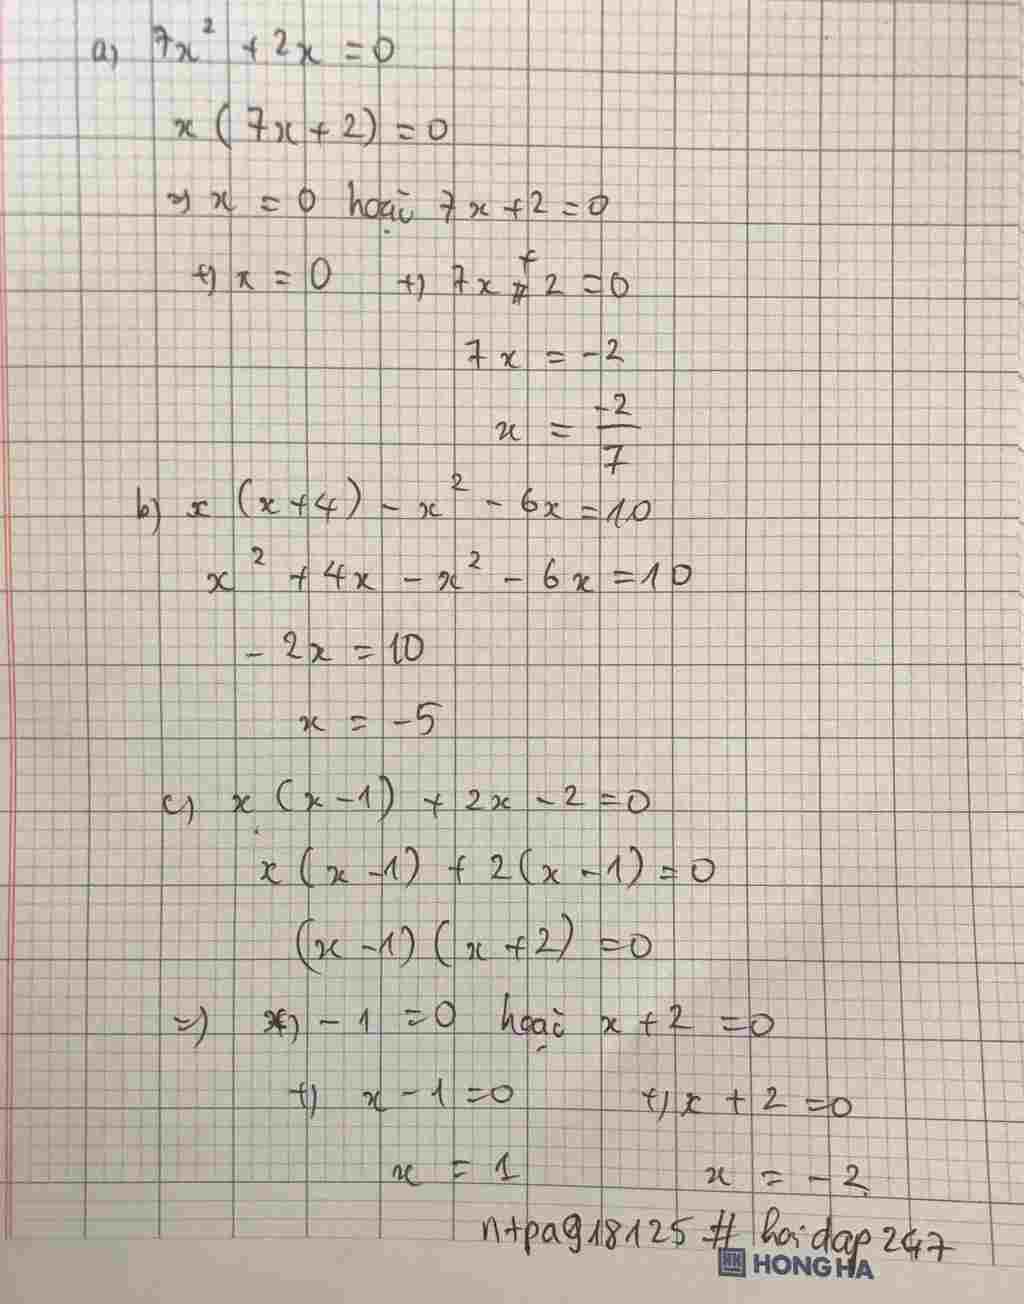 a) 7x² + 2x = 0
x (7x + 2) = 0
=> x = 0 hoặc 7x + 2 = 0
+) x = 0 +) 7x + 2 = 0
7x = -2
x = -2/7
b) x (x + 4) - x² - 6x = 10
x² + 4x - x² - 6x = 10
- 2x = 10
x = -5
c) x (x - 1) + 2x - 2 = 0
x (x - 1) + 2 (x - 1) = 0
(x - 1) (x + 2) = 0
=) x - 1 = 0 hoặc x + 2 = 0
+) x - 1 = 0 +) x + 2 = 0
x = 1 x = -2
n+pag18125 # hoidap247
HH HONG HA